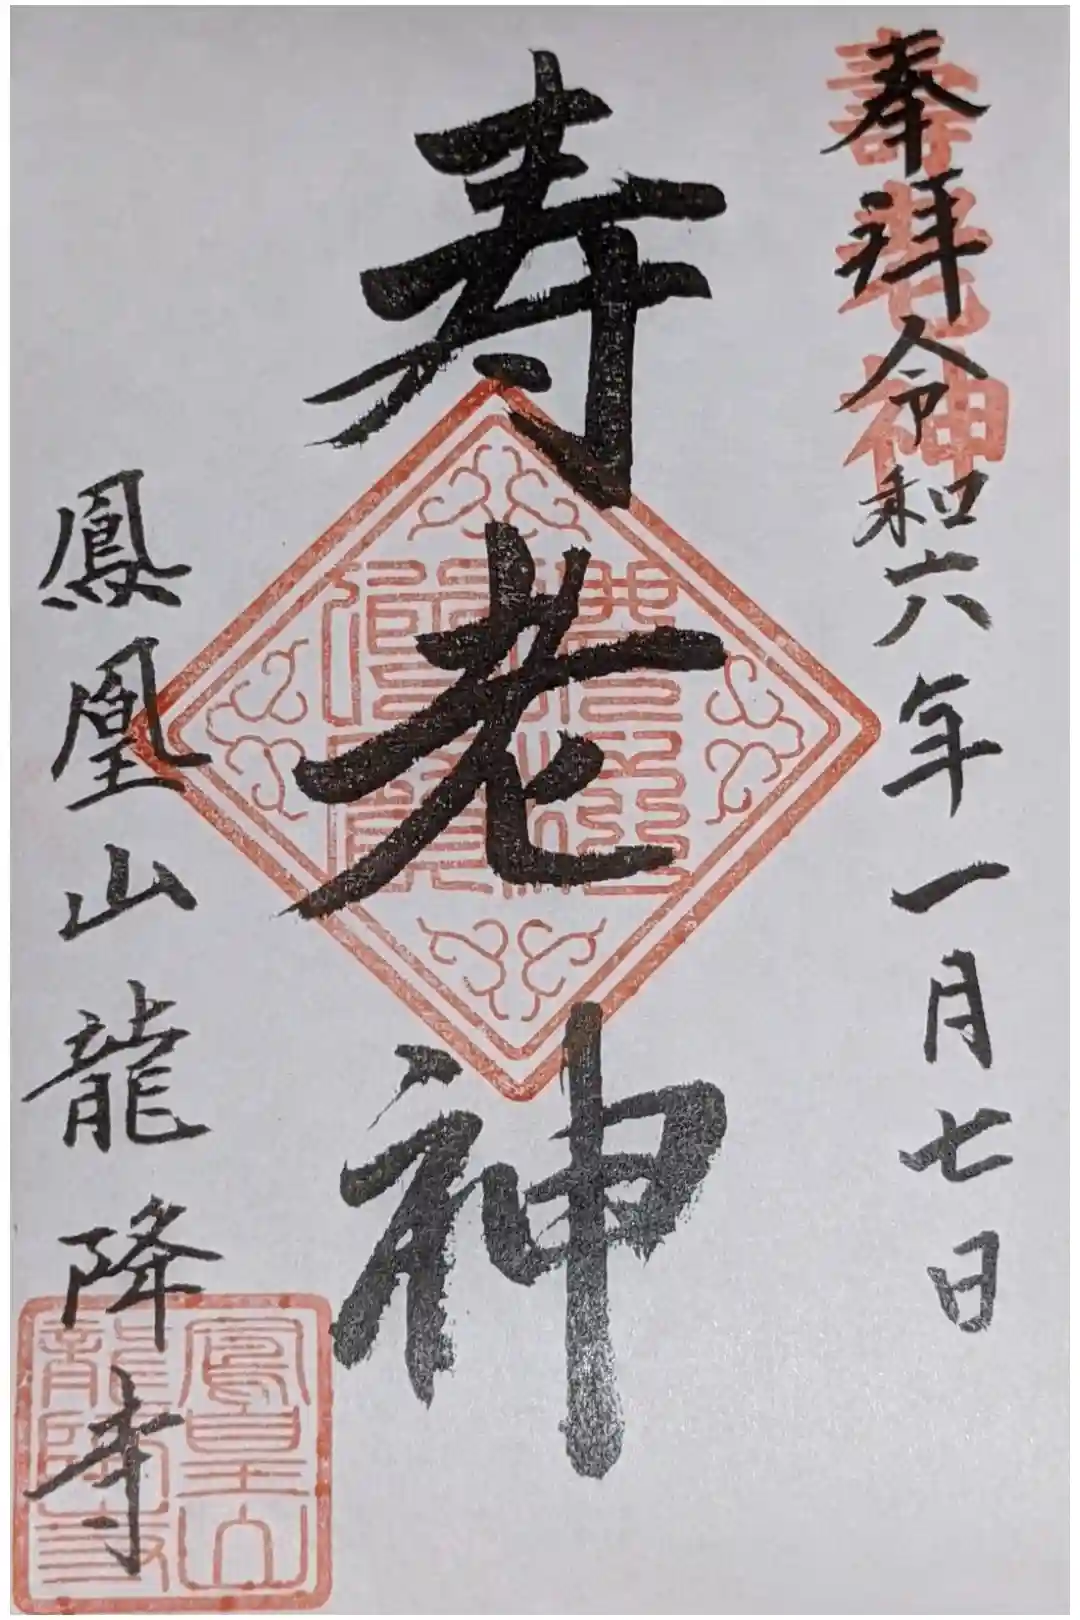 奉拝令和六年一月七日
壽老神
寿老神
鳳凰山龍降寺
鳳皇山
龍降寺